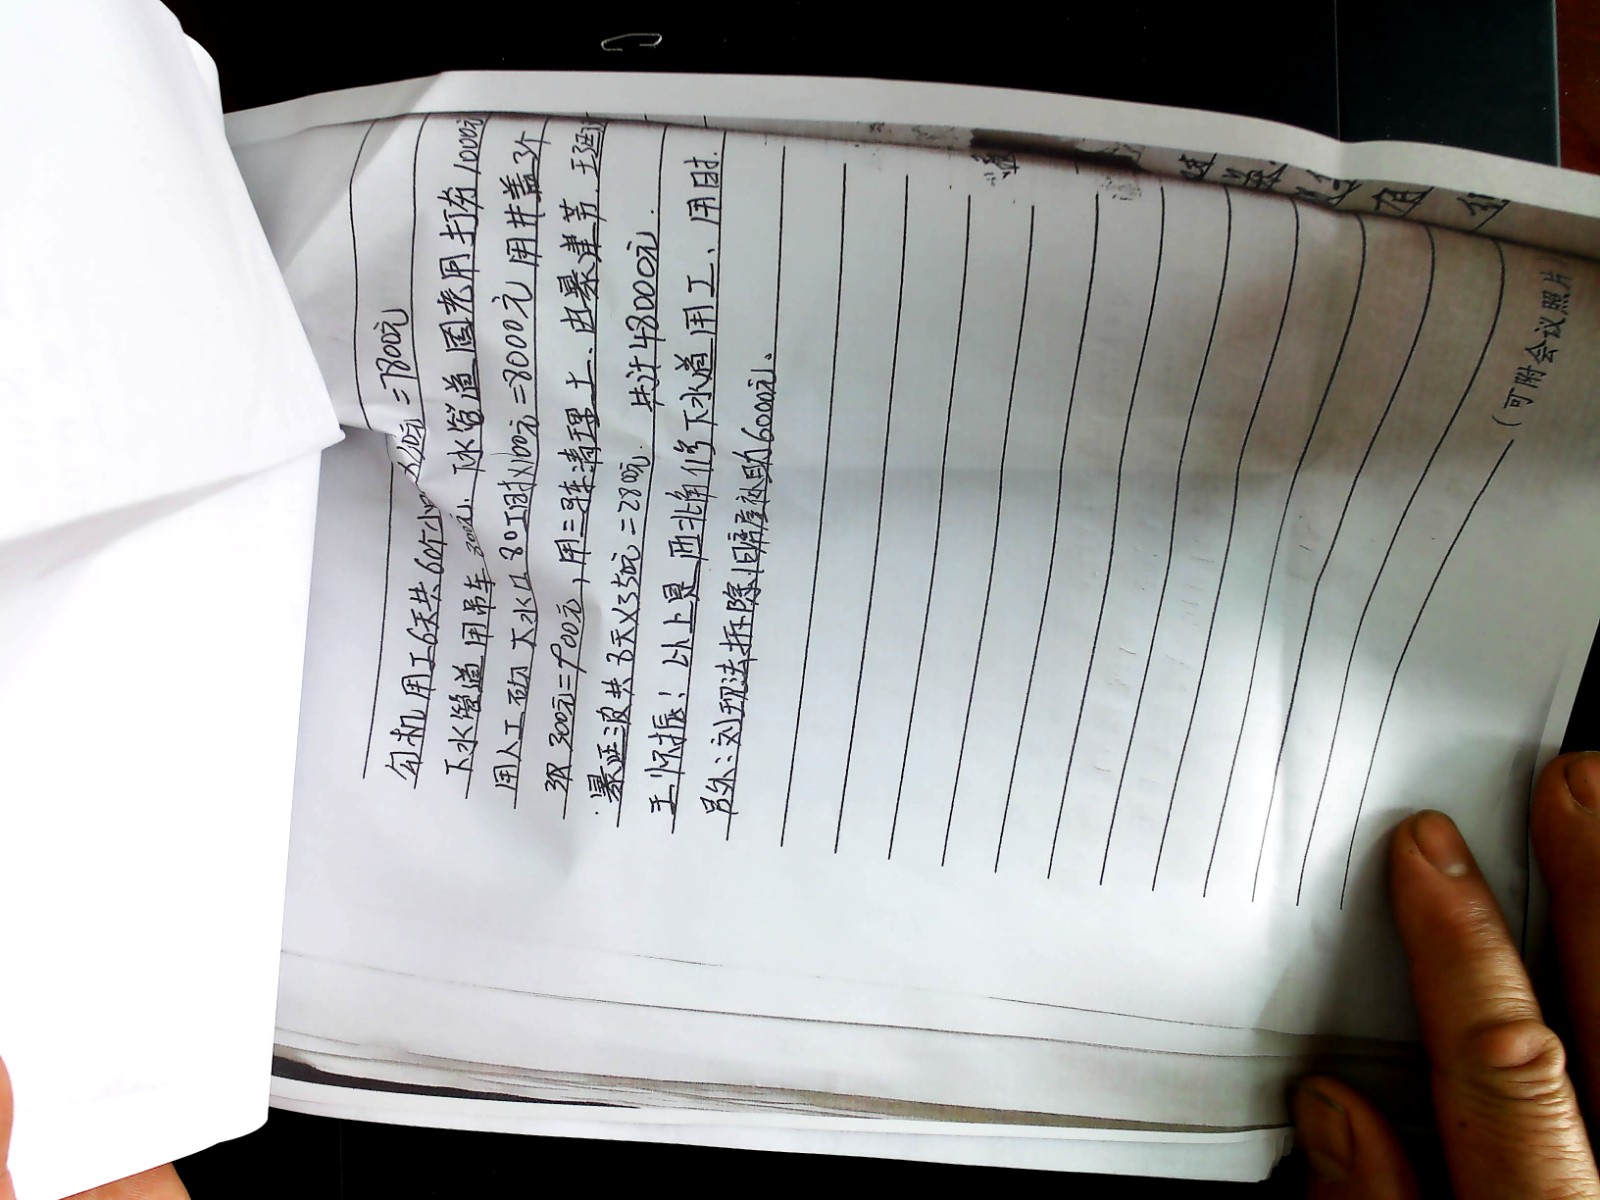 勾机用工6天共60个小 ×130元=7800元
下水管道用吊车300元、下水管道周老用打夯1000元
用人工砌下水口80工时×100元=8000元用井盖3个
300元=900元,用三马车清理土、由暴津芳、王
暴亚波共8天×350元=2800元. 共计48000元.
王怀振:以上是西北角修下水道用工、用时.
另外:刘现法拆除旧房屋补助6000元。
(可附会议照片